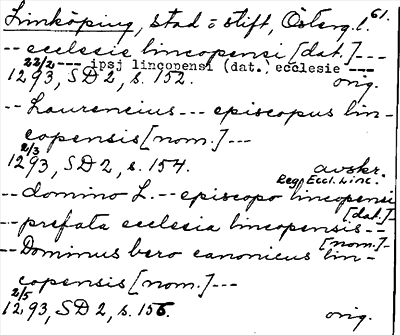 Linköping, stad o stift, Österg.l. 61.
-- ecclesie lincopensi [dat.] ---
22/2 --- ipsj lincopensi (dat.) ecclesie ---
1293, SD 2, s. 152. orig.
-- Laurencius --- episcopus lin-
copensis [nom.] ---
2/3
1293, SD 2, s. 154. avskr.
Reg. Eccl. Linc.
-- domino L. -- episcopo lincopensi
[dat.] -
-- prefata ecclesia lincopensis --
[nom.] -
-- Dominus bero canonicus lin-
copensis [nom.] ---
2/5
1293, SD 2, s. 156. orig.